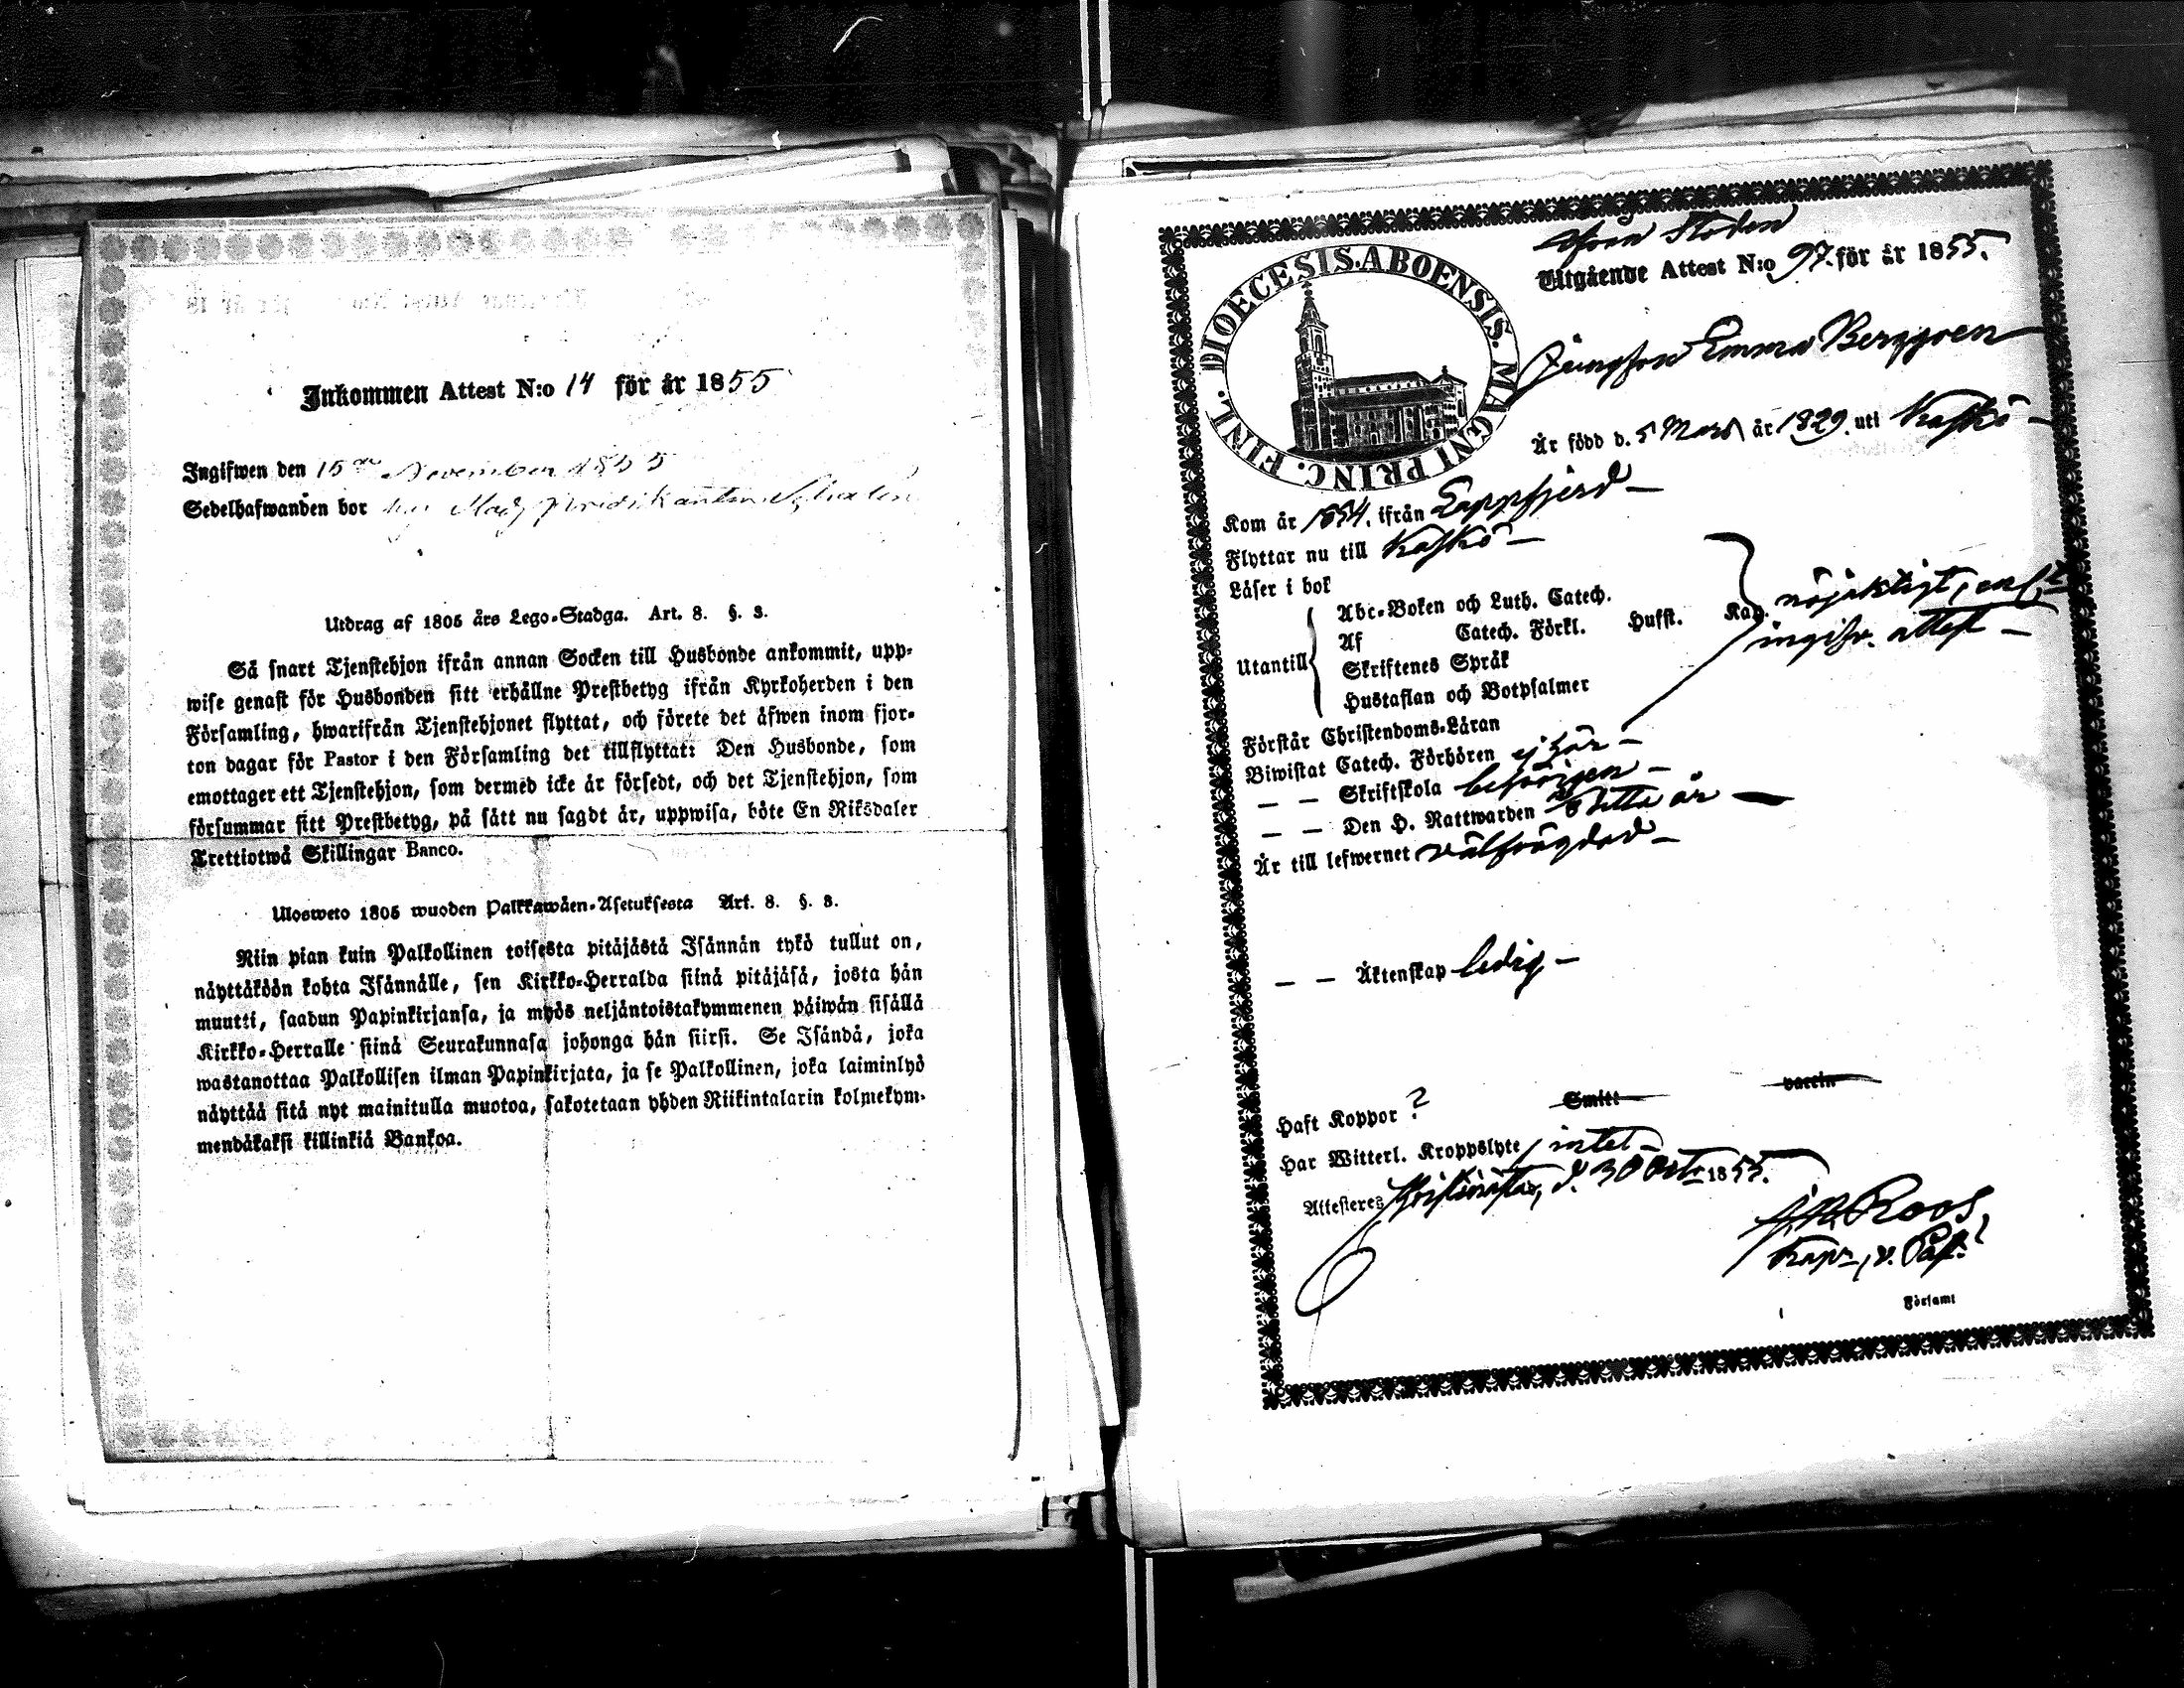 Inkommen Attest N:o 14 för år 1855
Ingifwen den 15de November 1855
Sedelhafwanden bor hos
Utdrag af 1805 års Lego-Stadga. Art. 8. §. 3.
Så snart Tjenstehjon ifrån annan Socken till Husbonde ankommit, upp-
wise genast för Husbonden sitt erhållne Prestbetyg ifrån Kyrkoherden i den
Församling, hwarifrån Tjenstehjonet flyttat, och förete det äfwen inom fjor-
ton dagar för Pastor i den Församling det tillflyttat: Den Husbonde, som
emottager ett Tjenstehjon, som dermed icke är försedt, och det Tjenstehjon, som
försummar sitt Prestbetyg, på sätt nu sagdt är, uppwisa, böte En Riksdaler
Trettiotwå Skillingar Banco.
Ulosweto 1805 wuoden Palkkawäen-Asetuksesta Art. 8. §. 3.
Niin pian kuin Palkollinen toisesta pitäjästä Isännän tykö tullut on,
näyttäköön kohta Isännälle, sen Kirkko-Herralda siinä pitäjäsä, josta hän
muutti, saadun Papinkirjansa, ja myös neljäntoistakymmenen päiwän sisällä
Kirkko-Herralle siinä Seurakunnasa johonga hän siirsi. Se Isändä, joka
wastanottaa Palkollisen ilman Papinkirjata, ja se Palkollinen, joka laiminlyö
näyttää sitä nyt mainitulla muotoa, sakotetaan yhden Riikintalarin kolmekym-
mendäkaksi killinkiä Bankoa.
DIOECESIS. ABOENSIS. MAGNI PRINC. FINL.
från Staden
Utgående Attest N:o 97. för år 1855.
Jungfrun Emma Berggren
Är född d. 5 Mars år 1829. uti Kaskö
Kom år 1854. ifrån Lappfjerd
Flyttar nu till Kaskö
Läser i bok
Abc-Boken och Luth. Catech.
Af Catech. Förkl. Husst. Kap.
Utantill
Skriftenes Språk
Hustaflan och Botpsalmer
nöjaktigt, enl.
ingifv. attest
Förstår Christendoms-Läran
Biwistat Catech. Förhören ej här
— — Skriftskola behörigen
— — Den H. Nattwarden detta år
Är till lefwernet välfrägdad
— — Äktenskap ledig
Haft Koppor ? Smitt vaccin
Har Witterl. Kroppslyte intet
Attesteres Kristinestad, d. 30 Octr 1855.
Roos
Kapn, v. Past.
Församl